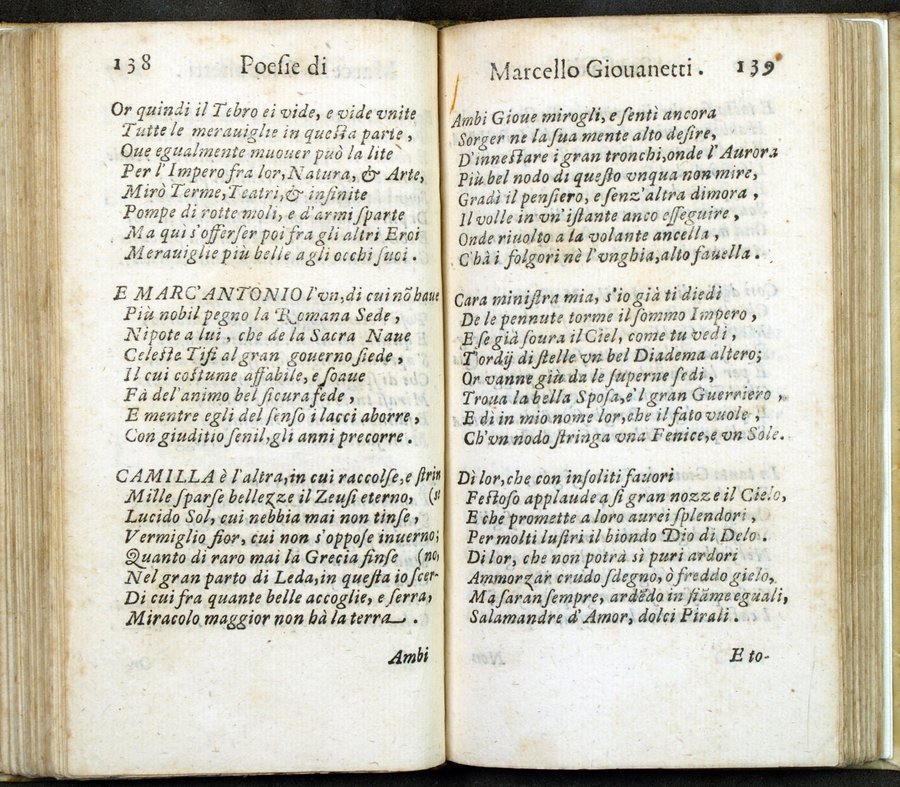 138 Poesie di
Or quindi il Tebro ei vide, e vide vnite
Tutte le merauiglie in questa parte,
Oue egualmente muouer può la lite
Per l'Impero fra lor, Natura, & Arte,
Mirò Terme, Teatri, & infinite
Pompe di rotte moli, e d'armi sparte
Ma qui s'offerser poi fra gli altri Eroi
Merauiglie più belle a gli occhi suoi.
E MARC'ANTONIO l'vn, di cui nõ haue
Più nobil pegno la Romana Sede,
Nipote a lui, che de la Sacra Naue
Celeste Tifi al gran gouerno siede,
Il cui costume affabile, e soaue
Fà del'animo bel sicura fede,
E mentre egli del senso i lacci aborre,
Con giuditio senil, gli anni precorre.
CAMILLA è l'altra, in cui raccolse, e strin
Mille sparse bellezze il Zeusi eterno, (se
Lucido Sol, cui nebbia mai non tinse,
Vermiglio fior, cui non s'oppose inuerno;
Quanto di raro mai la Grecia finse (no,
Nel gran parto di Leda, in questa io scer-
Di cui fra quante belle accoglie, e serra,
Miracolo maggior non hà la terra.
Ambi
Marcello Giouanetti. 139
Ambi Gioue mirogli, e sentì ancora
Sorger ne la sua mente alto desire,
D'innestare i gran tronchi, onde l'Aurora
Più bel nodo di questo vnqua non mire,
Gradì il pensiero, e senz'altra dimora,
Il volle in vn'istante anco esseguire,
Onde riuolto a la volante ancella,
C'hà i folgori nè l'vnghia, alto fauella.
Cara ministra mia, s'io già ti diedi
De le pennute torme il sommo Impero,
E se già soura il Ciel, come tu vedi,
T'ordij di stelle vn bel Diadema altero;
Or vanne giù da le superne sedi,
Troua la bella Sposa, e'l gran Guerriero,
E dì in mio nome lor, che il fato vuole,
Ch'vn nodo stringa vna Fenice, e vn Sole.
Dì lor, che con insoliti fauori
Festoso applaude a sì gran nozze il Cielo,
E che promette a loro aurei splendori,
Per molti lustri il biondo Dio di Delo.
Di lor, che non potrà sì puri ardori
Ammorzar crudo sdegno, ò freddo gielo,
Ma saran sempre, ardẽdo in fiãme eguali,
Salamandre d'Amor, dolci Pirali.
E to-